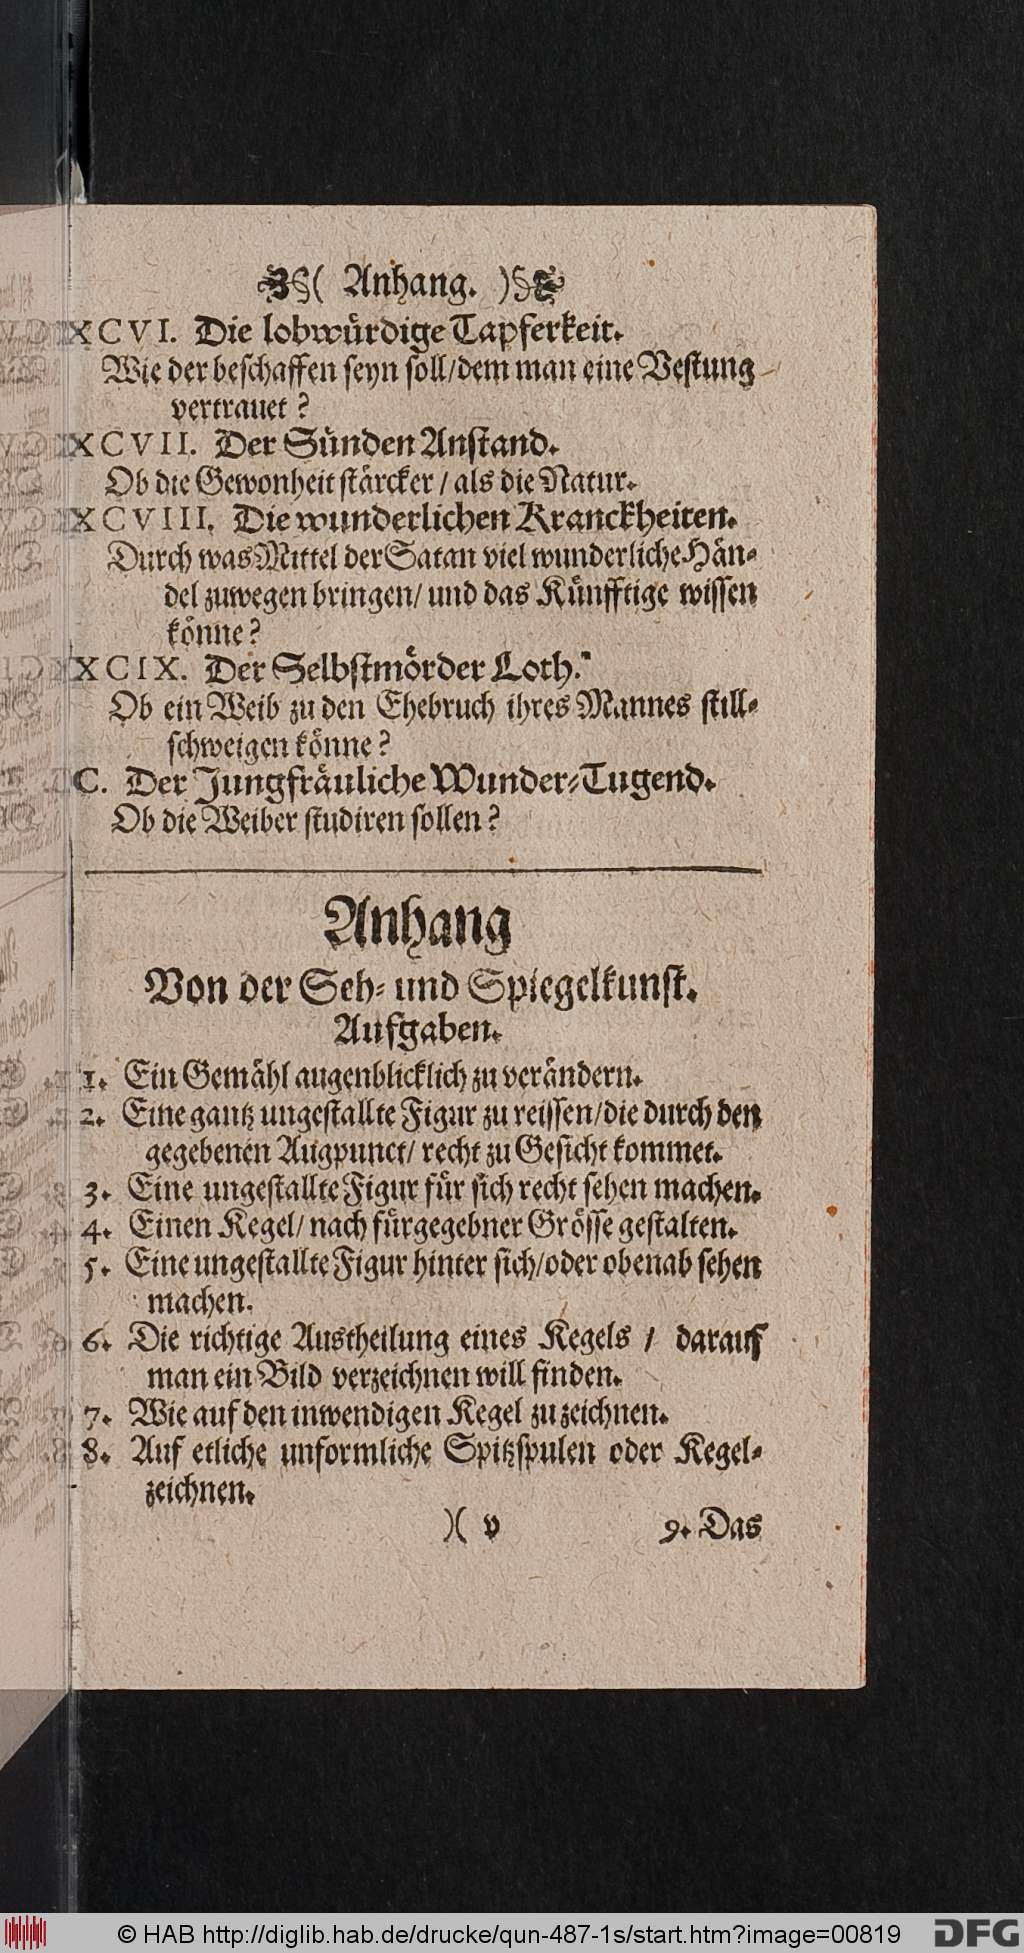 §( Anhang. )§
XCVI. Die lobwürdige Tapferkeit.
Wie der beschaffen seyn soll/dem man eine Vestung
vertrauet?
XCVII. Der Sünden Anstand.
Ob die Gewonheit stärcker / als die Natur.
XCVIII. Die wunderlichen Kranckheiten.
Durch was Mittel der Satan viel wunderliche Hän-
del zuwegen bringen/ und das Künfftige wissen
könne?
XCIX. Der Selbstmörder Loth.
Ob ein Weib zu den Ehebruch ihres Mannes still-
schweigen könne?
C. Der Jungfräuliche Wunder-Tugend.
Ob die Weiber studiren sollen?
Anhang
Von der Seh- und Spiegelkunst.
Aufgaben.
1. Ein Gemähl augenblicklich zu verändern.
2. Eine gantz ungestallte Figur zu reissen/die durch den
gegebenen Augpunct/ recht zu Gesicht kommet.
3. Eine ungestallte Figur für sich recht sehen machen.
4. Einen Kegel/ nach fürgegebner Grösse gestalten.
5. Eine ungestallte Figur hinter sich/oder obenab sehen
machen.
6. Die richtige Austheilung eines Kegels / darauf
man ein Bild verzeichnen will finden.
7. Wie auf den inwendigen Kegel zu zeichnen.
8. Auf etliche unformliche Spitzspulen oder Kegel-
zeichnen.
)( v 9. Das
© HAB http://diglib.hab.de/drucke/qun-487-1s/start.htm?image=00819
DFG